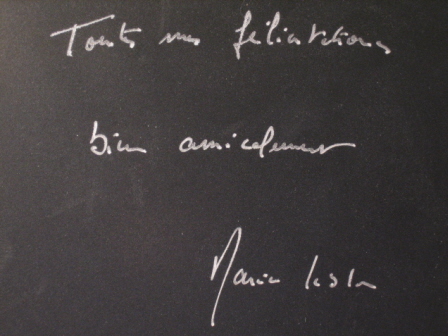 Toutes mes félicitations
bien amicalement